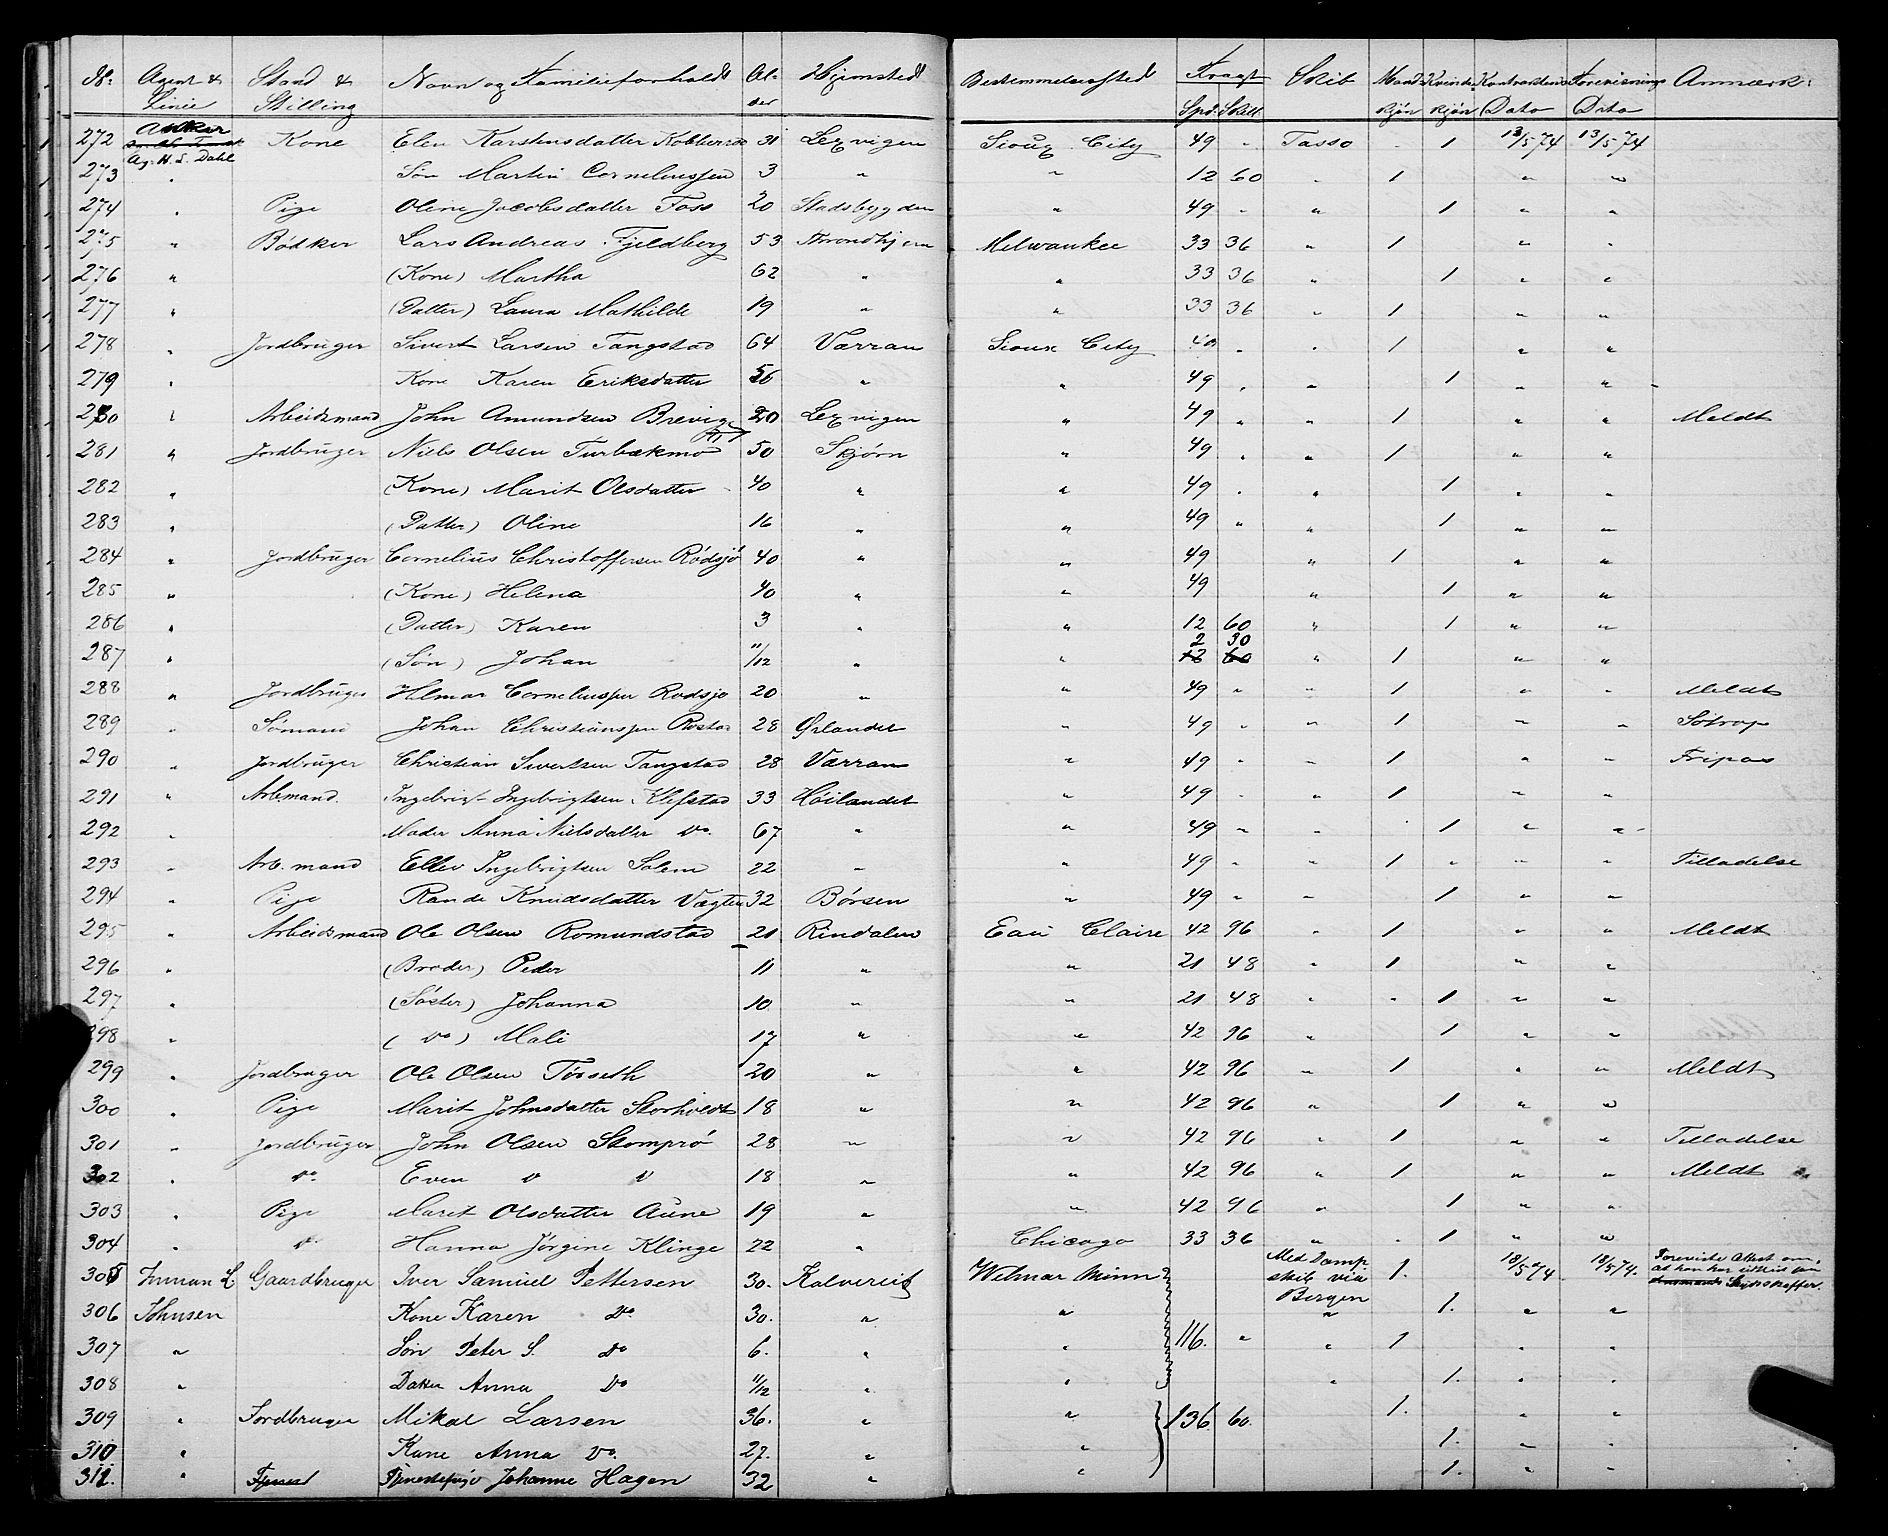 No. Agent & Linie Stand & Stilling Navn og Familieforholdt Alder Hjemstedt Bestemmelsessted Fragt Spd. Skill Skib Mandkjøn Kvindekjøn Kontraktens Dato Forevisnings Dato Anmærk:
272 Anker Ag. H. L. Dahl Kone Elen Karstensdatter 31 Lexvigen Sioux City 49 " Tasso 1 13/5 74 13/5 74
273 " Søn Martin Corneliussen 3 " " 12 60 " 1 " "
274 " Pige Oline Jacobsdatter Foss 20 Stadsbygden " 49 " " 1 " "
275 " Bødker Lars Andreas Fjeldberg 53 Trondhjem Milwaukee 33 36 " 1 " "
276 " (Kone) Martha 62 " " 33 36 " 1 " "
277 " (Datter) Laura Mathilde 19 " " 33 36 " 1 " "
278 " Jordbruger Sivert Larsen Tangstad 64 Værran Sioux City " " 1 " "
279 " Kone Karen Eriksdatter 56 " " 49 " " 1 " "
280 " Arbeidsmand John Amundsen 20 Lexvigen " 49 " " 1 " " Meldt
281 " Jordbruger Niels Olsen Turbækmo 50 Skjørn " 49 " " 1 " "
282 " (Kone) Marit Olsdatter 40 " " 49 " " 1 " "
283 " (Datter) Oline 16 " " 49 " " 1 " "
284 " Jordbruger Cornelius Christoffersen Rødsjø 40 " " 49 " 1 " "
285 " (Kone) Helena 40 " " 49 " 1 " "
286 " (Datter) Karen 3 " " 12 60 " 1 " "
287 " (Søn) Johan 11/12 " " 2 30 12 60 " 1 " "
288 " Jordbruger Hilmar Corneliussen Rødsjø 20 " " 49 " " 1 " " Meldt
289 " Sømand Johan Christianssen 28 Ørlandet " 49 " " 1 " "
290 " Jordbruger Christian Sivertsen Tangstad 28 Værran " 49 " " 1 " " Fripas
291 " Arbmand. Ingebrigt Ingebrigtsen Klefstad 33 Høilandet " 49 " " 1 " "
292 " Moder Anna Nielsdatter Do. 67 " " 49 " " 1 " "
293 " Arb. mand Ellev Ingebrigtsen Solem 22 " " 49 " " 1 " " " Tilladelse
294 " Pige Rande Knudsdatter 32 Børsen " 49 " " 1 " "
295 " Arbeidsmand Ole Olsen Romundstad 21 Rindalen Eau Claire 42 96 " 1 " " Meldt
296 " (Broder) Peder 11 " " 21 48 " 1 " "
297 " (Søster) Johanna 10 " " 21 48 " " 1 " "
298 " (Do) Mali 17 " " 42 96 " 1 " "
299 " Jordbruger Ole Olsen Tørseth 20 " " 42 96 " 1 " " Meldt
300 " Pige Marit Johnsdatter Storholdt 18 " " 42 96 " 1 " "
301 " Jordbruger John Olsen Skomprø 28 " " 42 96 " 1 " " Tilladelse
302 " Do. Even D D 18 " " 42 96 " 1 " " Meldt
303 " Pige Marit Olsdatter Aune 19 " " 42 96 " 1 " "
304 " D. Hanna Jørgine Klinge 22 " Chicago 33 36 " " 1 " "
305 Inman L Gaardbruger Iver Samuel Pettersen 30. Kalvereid Wilmar Minn Med Dampskib via Bergen 1. 18/5 74 18/5 74. Foreviste Attest om at han har
306 Johnsen Kone Karen Do 30. " " " 1. " "
307 " Søn Peter S. Do 6. " " 116. " " 1 " "
308 " Datter Anna Do 11/12 " " " 1. " "
309 " Jordbruger Mikal Larsen 36. " " 136 60. 1. " "
310 " Kone Anna Do. 27. " " 1. " "
311. " Tjenestepige Johanne Hagen 32 " " 1. " "